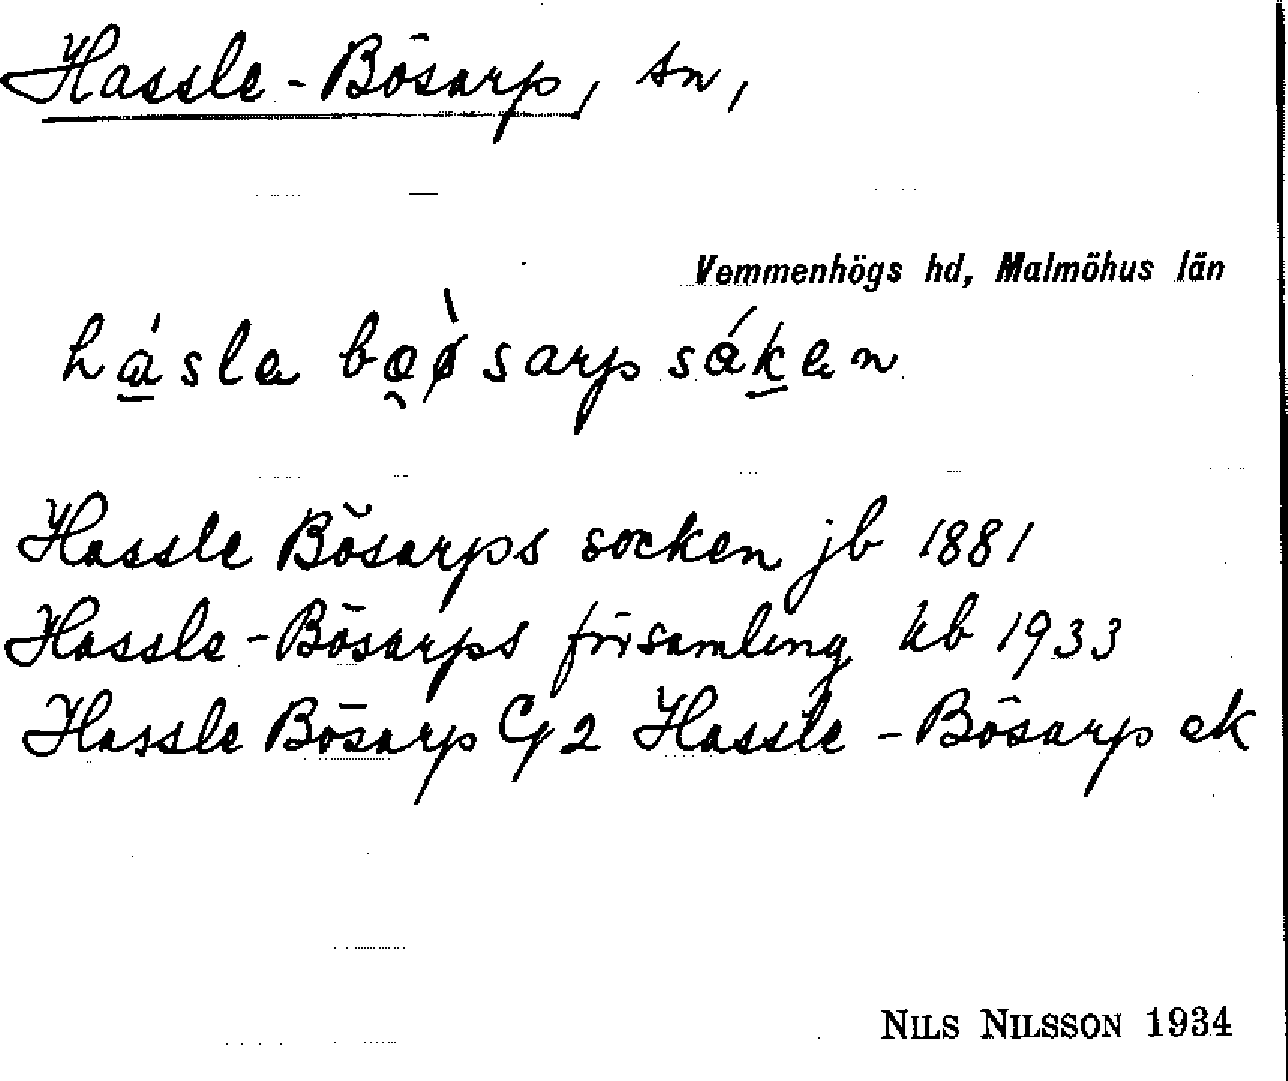 Hassle-Bösarp, sn,
Vemmenhögs hd, Malmöhus län
hásle bøsarp såken
Hassle Bösarps socken jb 1881
Hassle-Bösarps församling kb 1933
Hassle Bösarp G2 Hassle-Bösarp ek
NILS NILSSON 1934